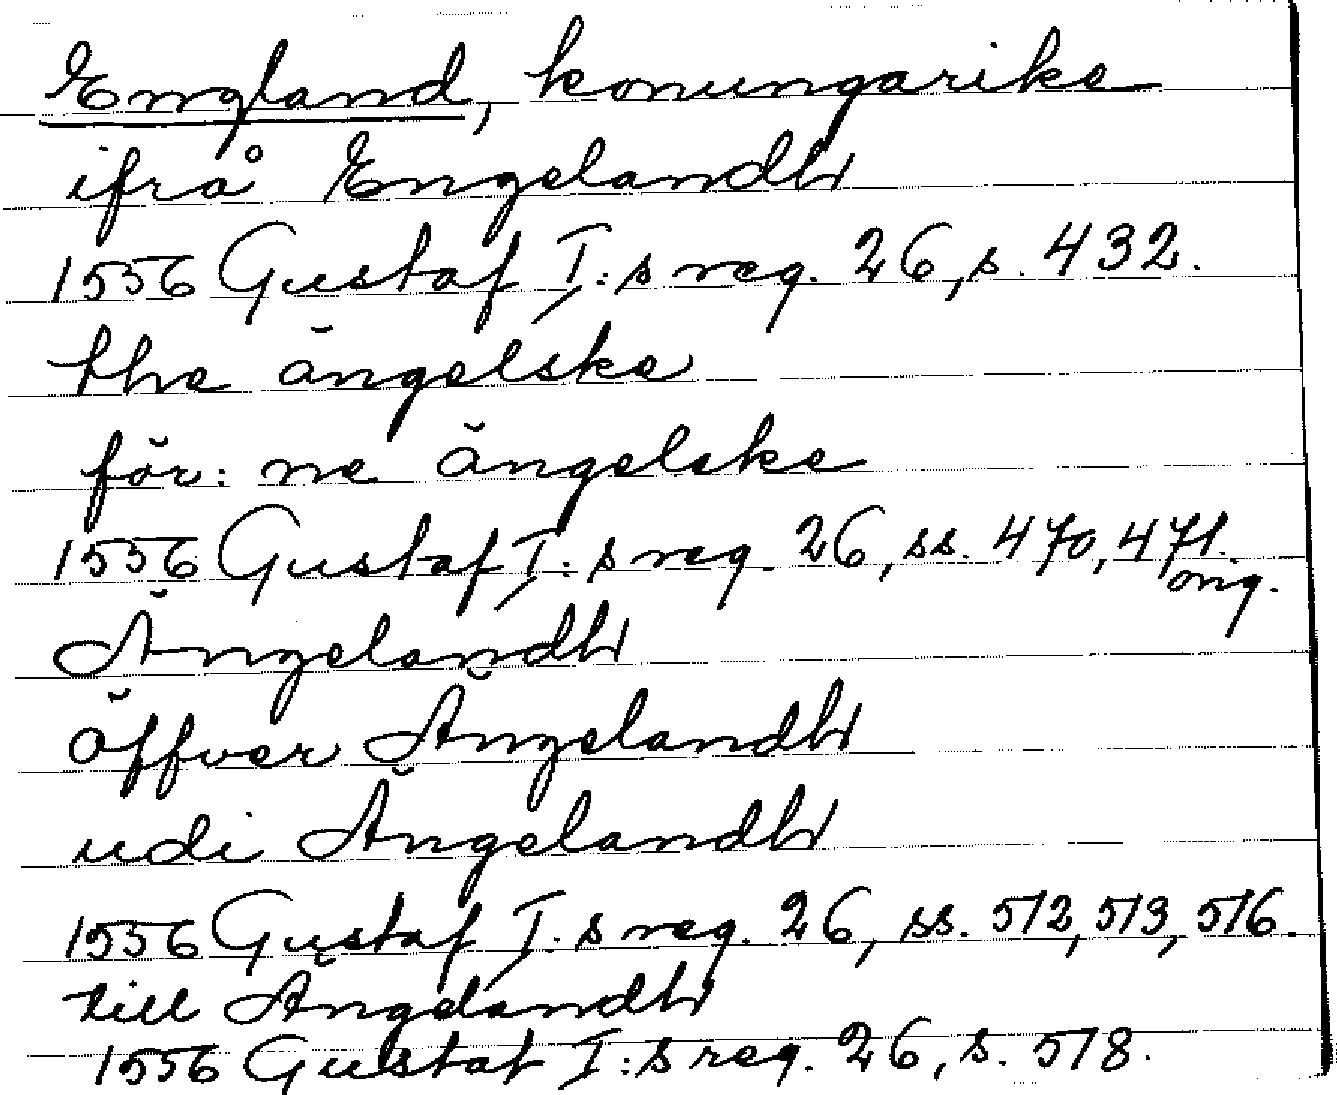 England, konungarike
ifrå Engelandh
1556 Gustaf I:s reg. 26, s. 432.
the ängelske
för: ne ängelske
1556 Gustaf I:s reg. 26, ss. 470, 471.
orig.
Ängelandh
öffver Ängelandh
udi Ängelandh
1556 Gustaf I:s reg. 26, ss. 512, 513, 516.
till Ängelandh
1556 Gustaf I:s reg. 26, s. 518.